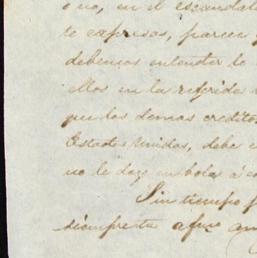 o no, en el escandal
te expresas, parece
debemos entender lo
ellos en la referida
que los demas credito
Estados Unidos, debe
no le doy en bola á
Sin tiempo
siempre tu afmo am